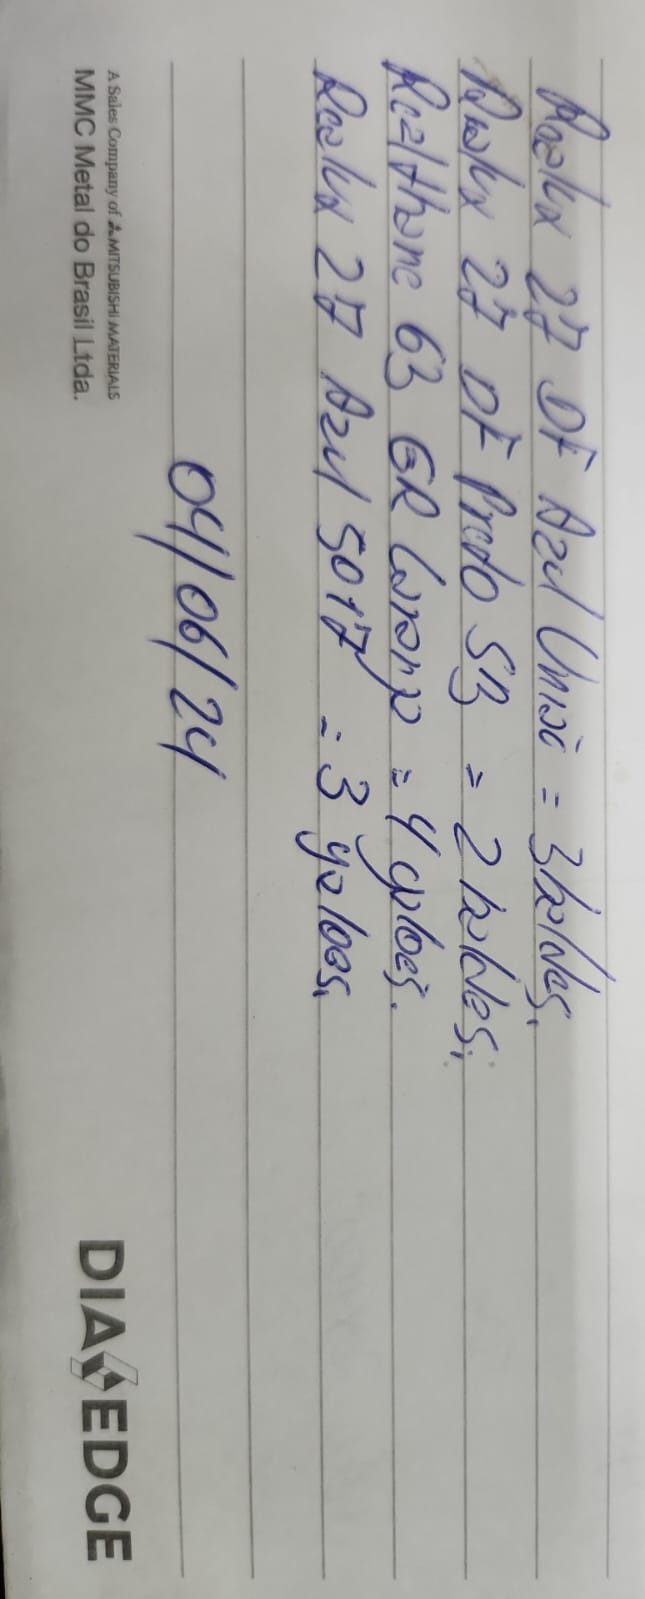 Realux 27 DF Azul Unisê = 3 baldes.
Realux 27 DF Preto SB = 2 baldes.
Realthane 63 GR laranja = 4 galoes.
Realux 27 Azul 5017 = 3 galoes.
04/06/24
A Sales Company of MITSUBISHI MATERIALS
MMC Metal do Brasil Ltda.
DIAEDGE